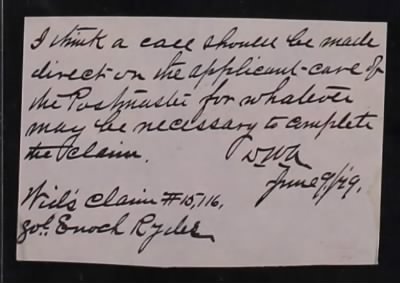 I think a call should be made
direct on the applicant - care of
the Postmaster for whatever
may be necessary to complete
the claim.
June 9/79.
Wid's claim # 15,116.
Enoch Ryder